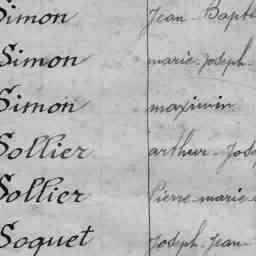 Simon Jean-Bapt
Simon marie-Joseph-
Simon maximin
Sollier arthur-Jos
Sollier Pierre-marie
Soquet Joseph-Jean-